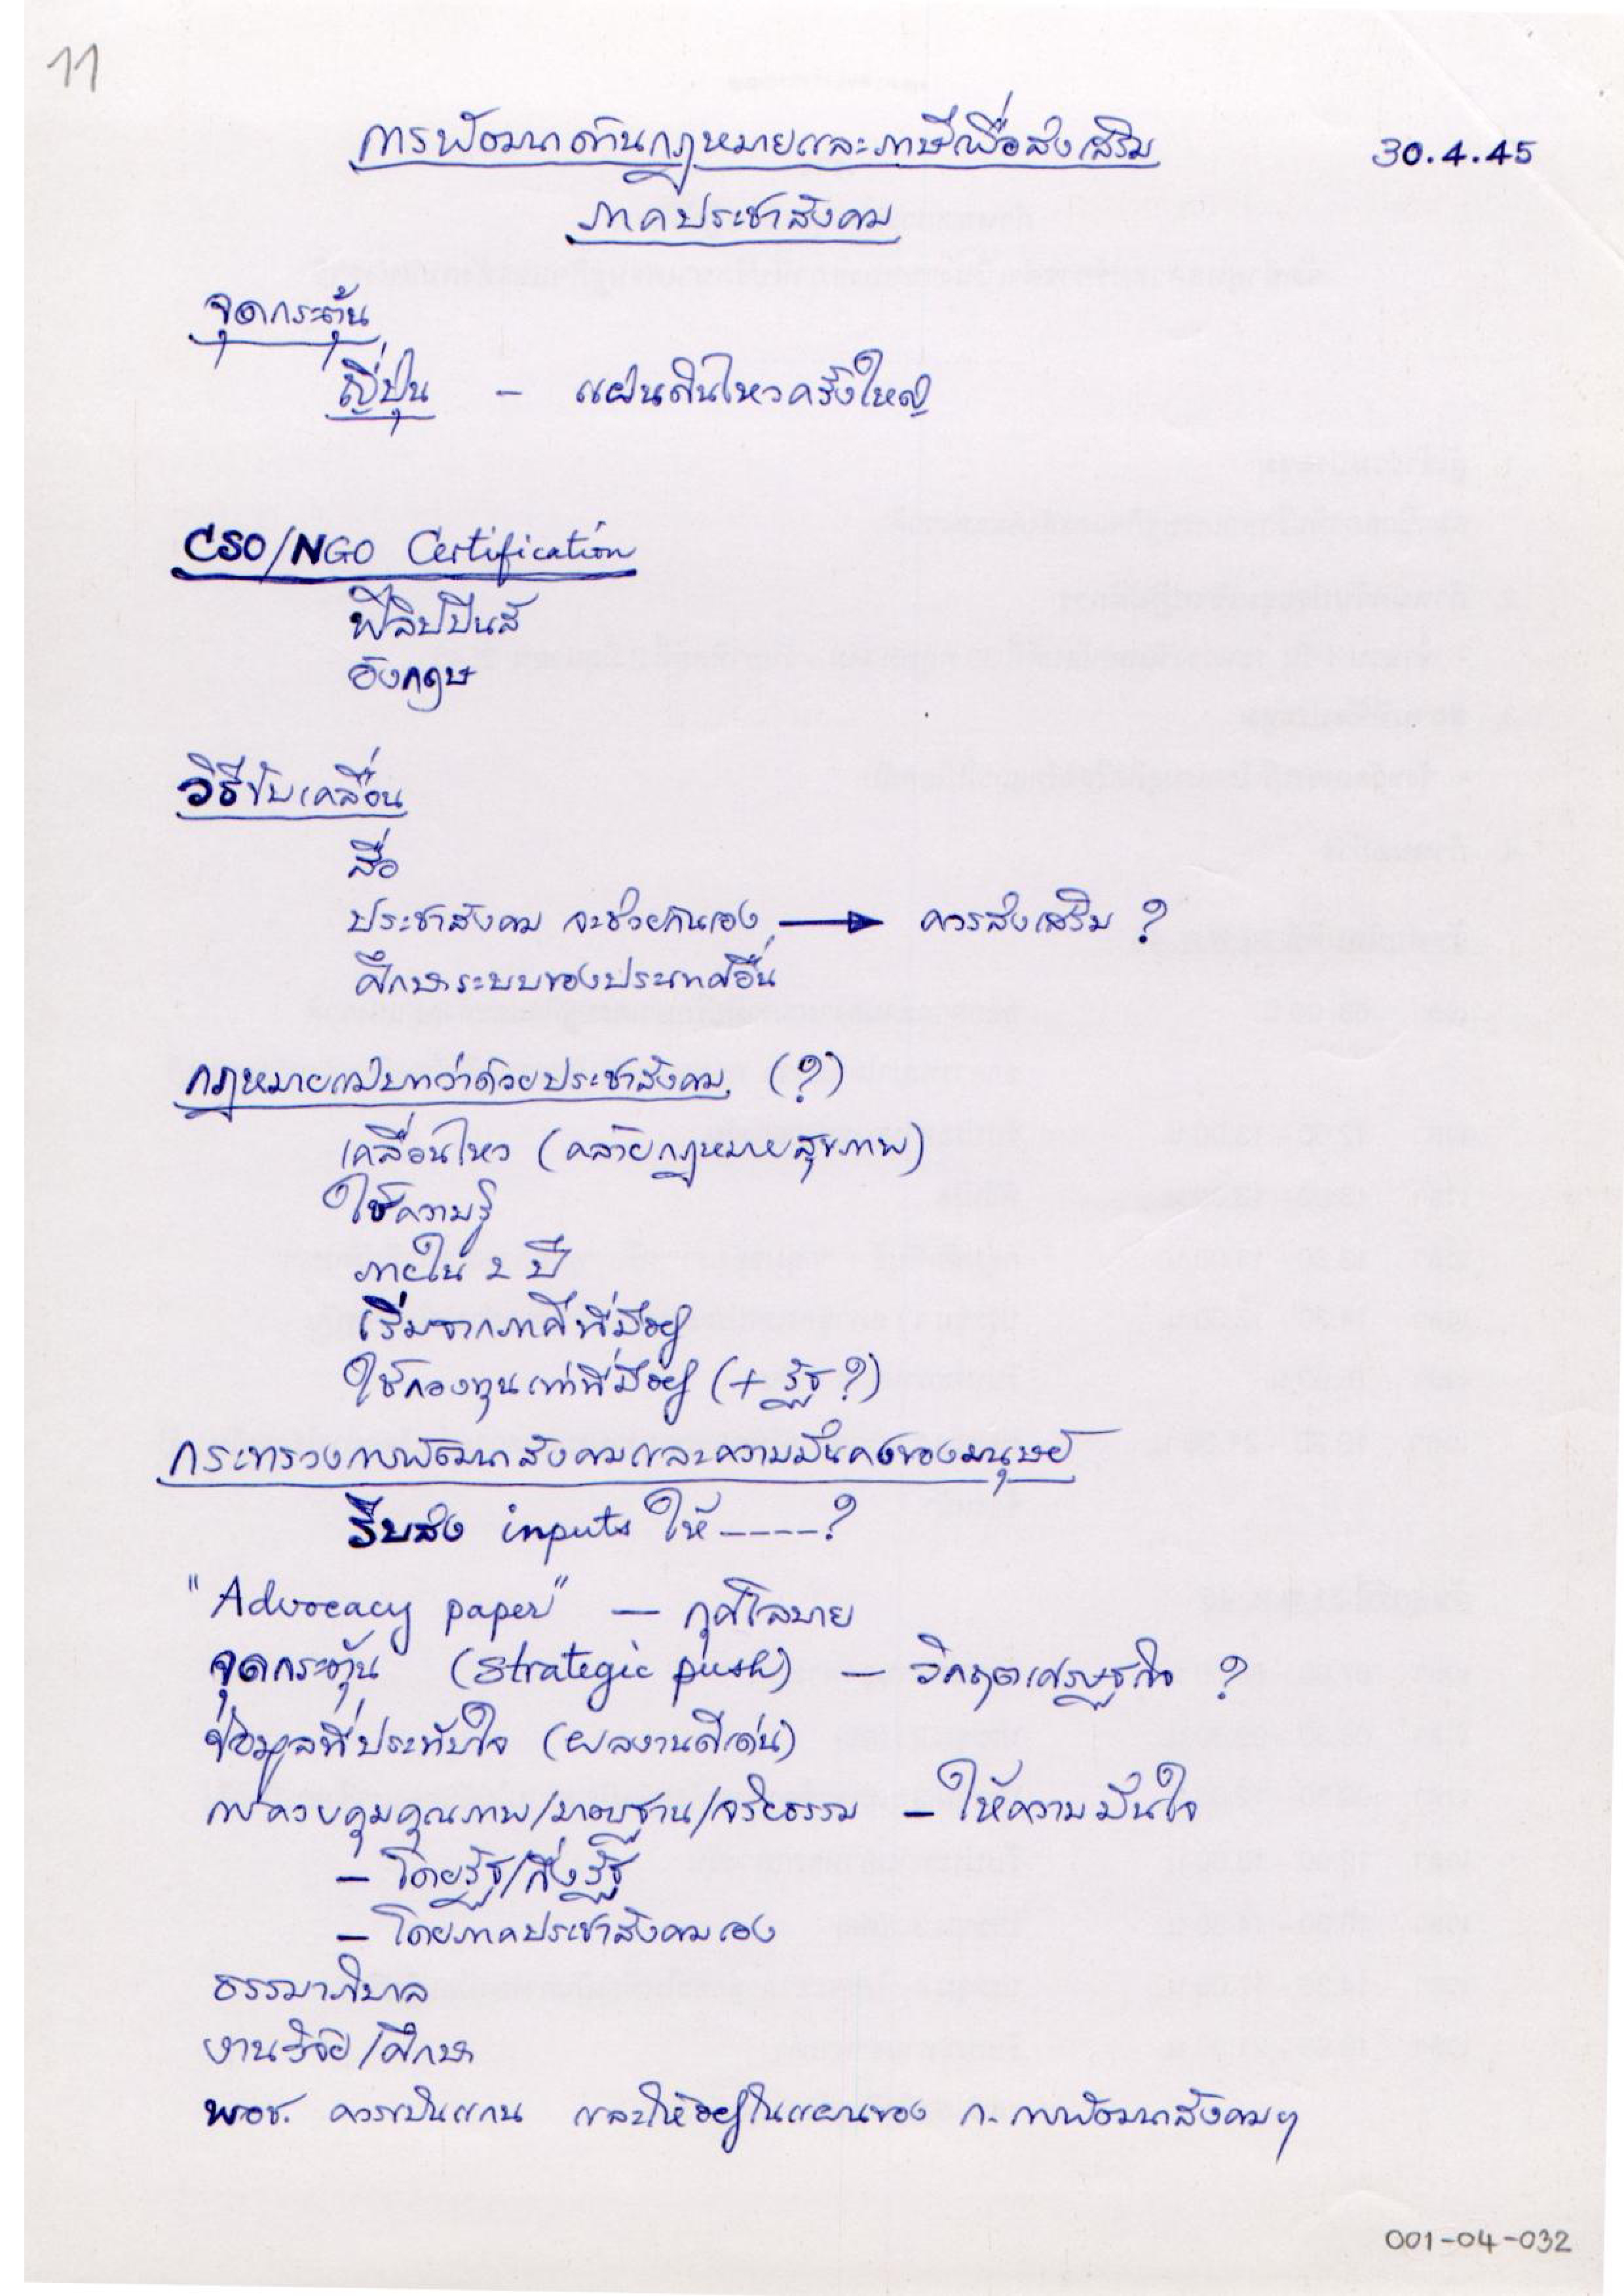 11
การพัฒนาด้านกฎหมายและภาษีเพื่อส่งเสริม 30.4.45
ภาคประชาสังคม
จุดกระตุ้น
ญี่ปุ่น - แผ่นดินไหวครั้งใหญ่
CSO/NGO Certification
ฟิลิปปินส์
อังกฤษ
วิธีขับเคลื่อน
สื่อ
ประชาสังคม จะช่วยกันเอง → ควรส่งเสริม ?
ศึกษาระบบของประเทศอื่น
กฎหมายแม่บทว่าด้วยประชาสังคม (?)
เคลื่อนไหว (คล้ายกฎหมายสุขภาพ)
ใช้ความรู้
ภายใน 2 ปี
เริ่มจากภาคีที่มีอยู่
ใช้กองทุนเท่าที่มีอยู่ (+ รัฐ ?)
กระทรวงการพัฒนาสังคมและความมั่นคงของมนุษย์
รีบส่ง inputs ให้ ----?
"Advocacy paper" — กุศโลบาย
จุดกระตุ้น (Strategic push) — วิกฤตเศรษฐกิจ ?
ข้อมูลที่ประทับใจ (ผลงานดีเด่น)
การควบคุมคุณภาพ/มาตรฐาน/จริยธรรม — ให้ความมั่นใจ
— โดยรัฐ/กึ่งรัฐ
— โดยภาคประชาสังคมเอง
ธรรมาภิบาล
งานวิจัย/ศึกษา
พอช. ควรเป็นแกน และให้อยู่ในแผนของ ก. การพัฒนาสังคมฯ
001-04-032